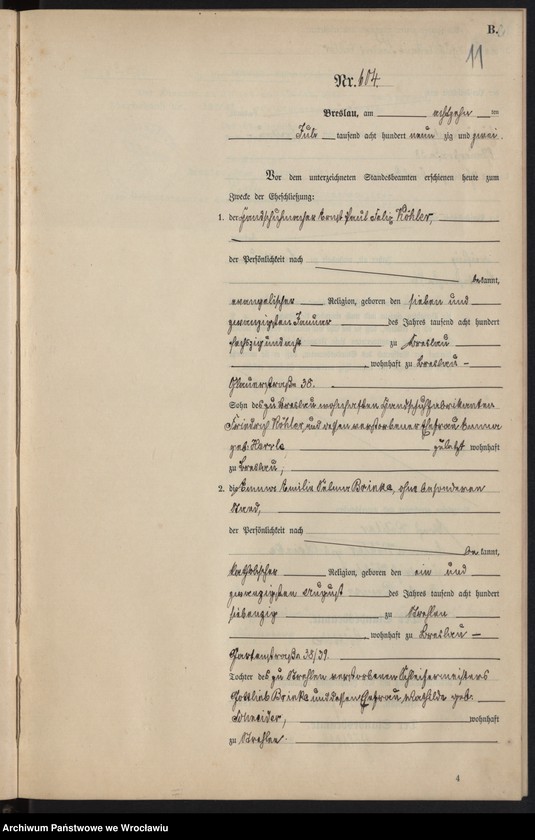 B.
11
Nr. 604.
Breslau, am achtzehn ten
Juli tausend acht hundert neun zig und zwei.
Vor dem unterzeichneten Standesbeamten erschienen heute zum
Zwecke der Eheschließung:
1. der Handschuhmacher Ernst Paul Felix Köhler,
der Persönlichkeit nach
bekannt,
evangelischer Religion, geboren den sieben und
zwanzigsten Januar des Jahres tausend acht hundert
sechszig und acht zu Breslau
, wohnhaft zu Breslau –
Ohlauerstraße 35.
Sohn des zu Breslau wohnhaften Handschuhfabrikanten
Friedrich Köhler, und dessen verstorbener Ehefrau
geb. zuletzt wohnhaft
zu Breslau;
2. die Emma Emilie Selma Brinke, ohne besonderen
Stand,
der Persönlichkeit nach
be kannt,
katholischer Religion, geboren den ein und
zwanzigsten August des Jahres tausend acht hundert
siebenzig zu Strehlen
, wohnhaft zu Breslau –
Gartenstraße 38/39.
Tochter des zu Strehlen verstorbenen Schleifermeisters
Gottlieb Brinke und dessen Ehefrau, Mathilde geb.
Schneider, wohnhaft
zu Strehlen.
4
Archiwum Państwowe we Wrocławiu